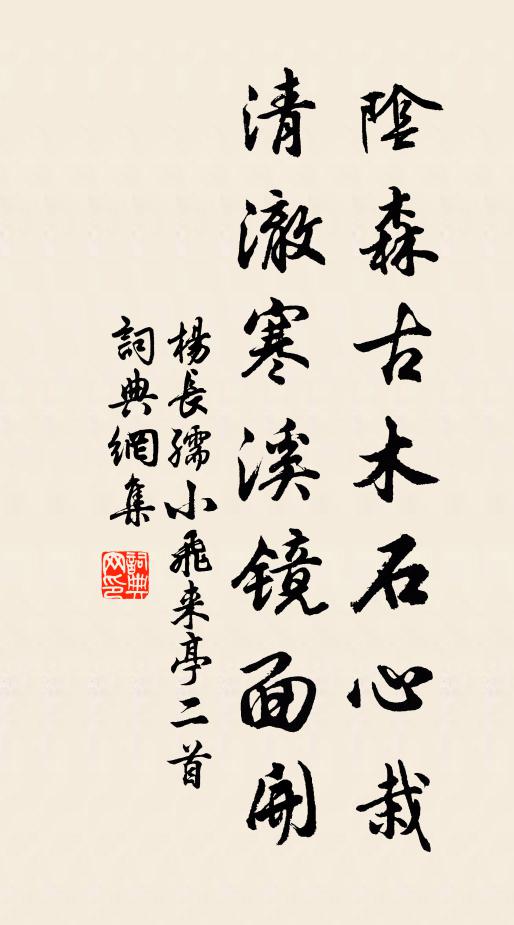 陰森古木石心栽
清澈寒溪鏡面開
楊長孺小飛来亭二首
詞典網集
詞典網印